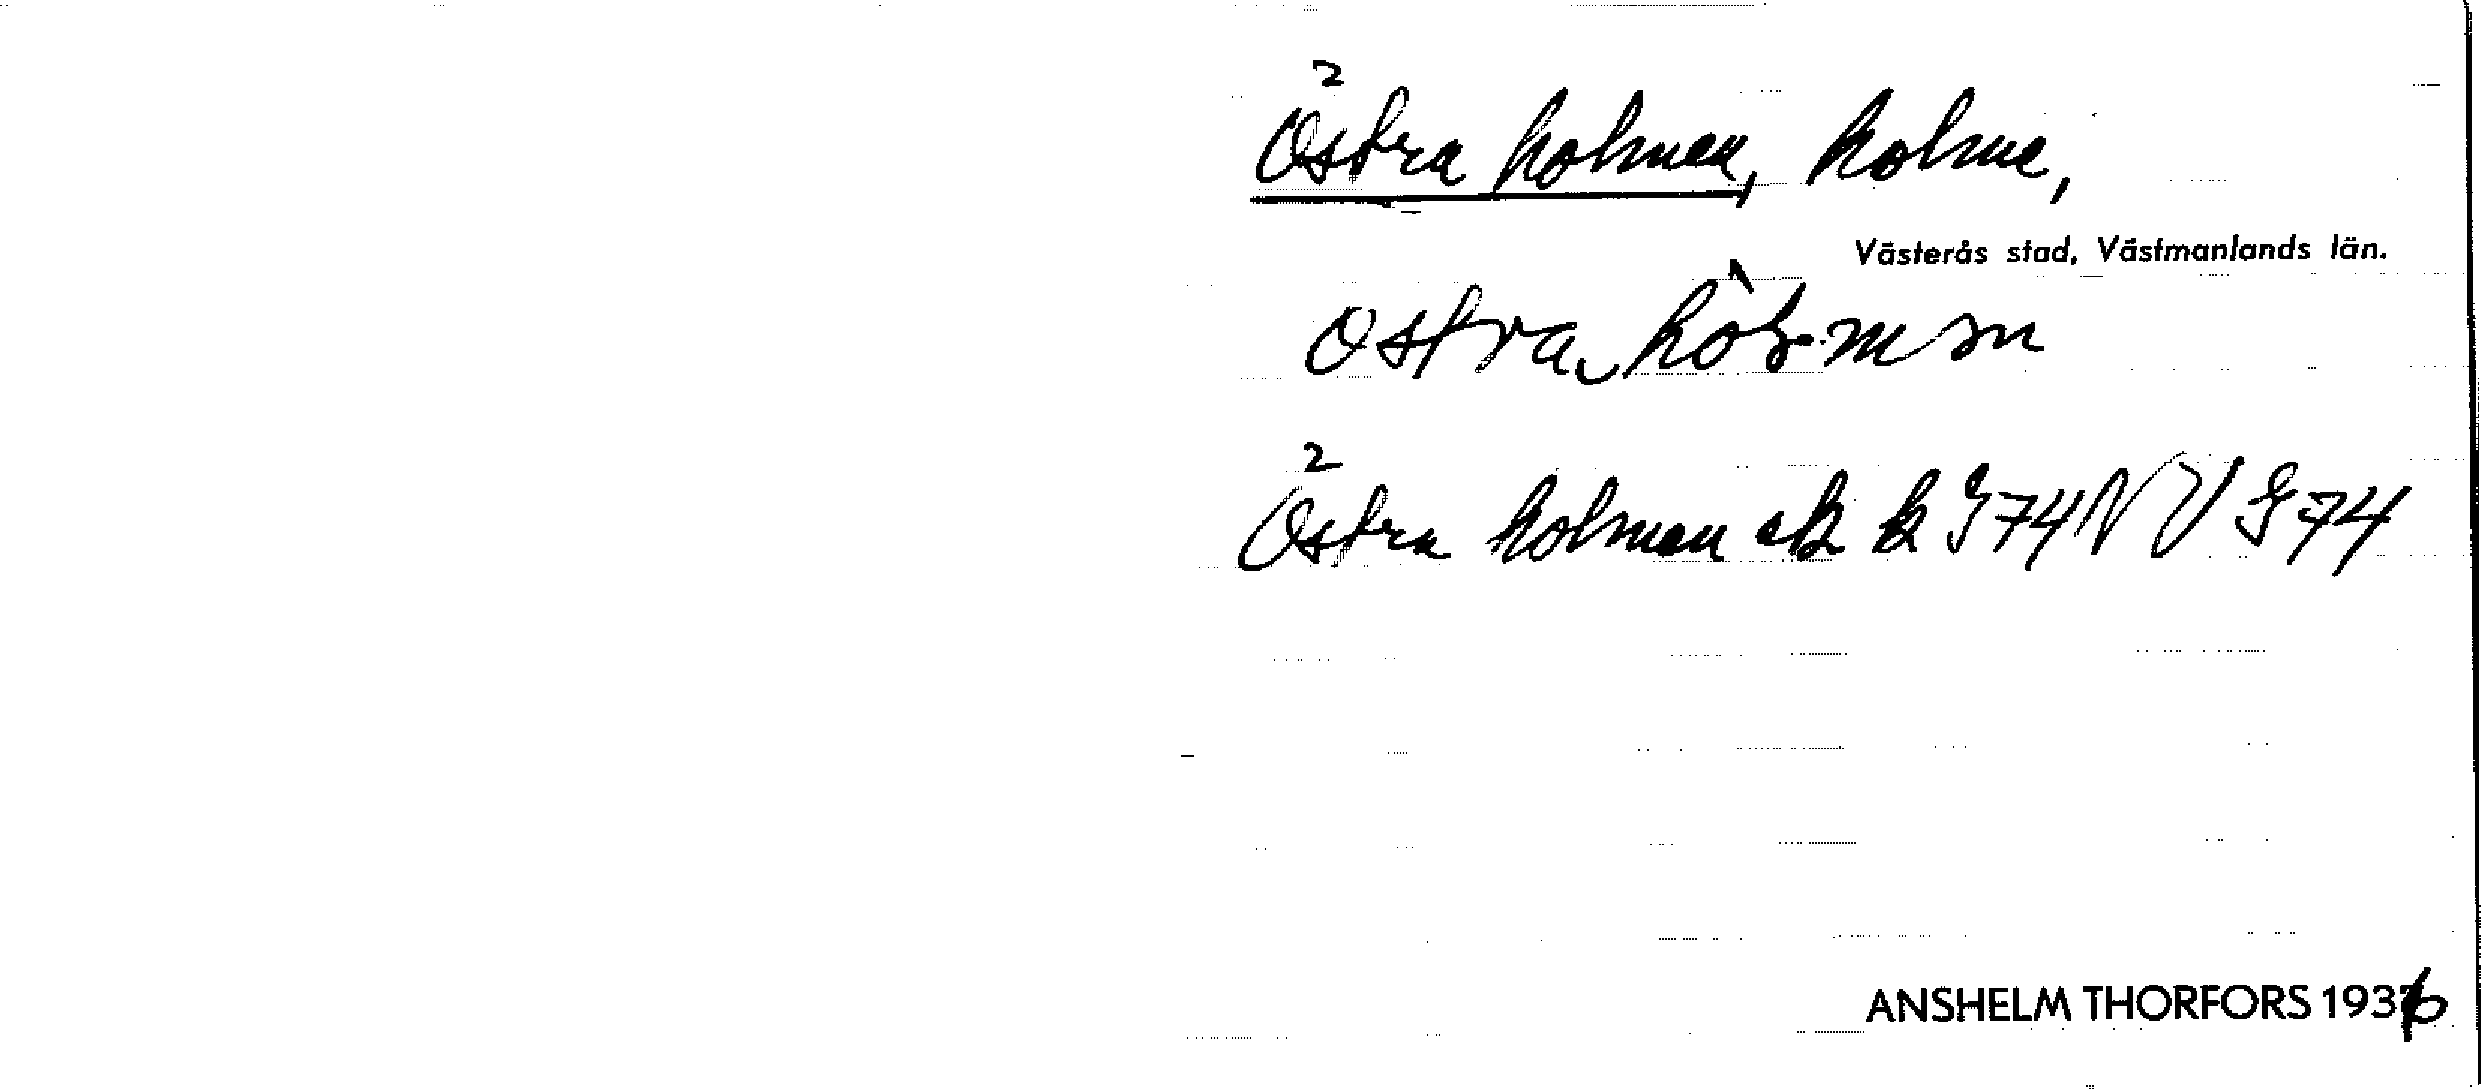 2
Östra holmen, holme,
Västerås stad, Västmanlands län.
östra hol-mən
2
Östra holmen ek k J74NV J74
ANSHELM THORFORS 1936